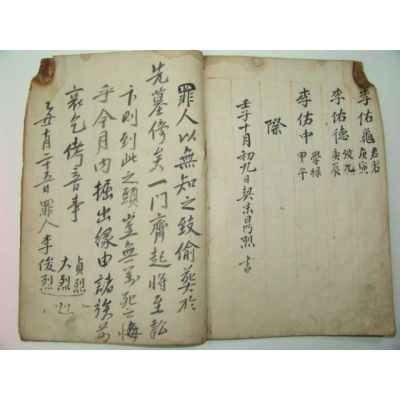 李佑龜 君若 庚寅
李佑德 攸九 庚辰
李佑中 學祿 甲午
際
壬子十月初九日契末昌烈書
罪人以無知之致偷葬於
先墓傍矣一門齊起將至訟
卞則到此之頭豈無萬死之悔
乎今月內掘出緣由諸族前
哀乞侤音事
乙卯月二十五日罪人李俊烈
大烈
貞烈